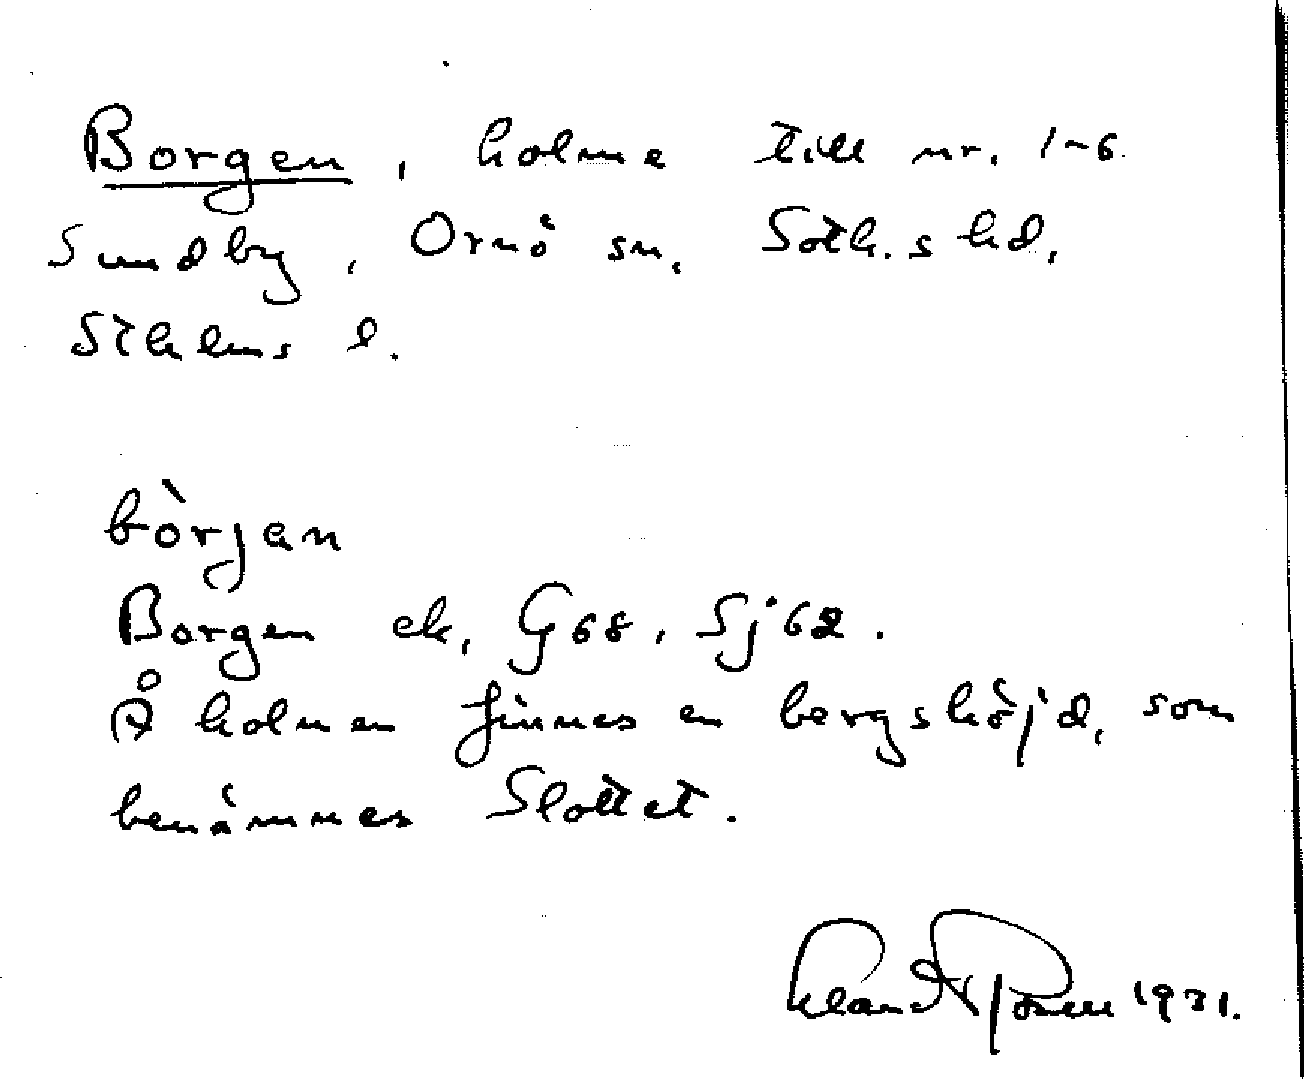 Borgen, holme till nr. 1-6
Sundby, Ornö sn, Soth.s hd,
Sthlms l.
bòrjan
Borgen ek, G68, Sj62.
Å holmen finnes en bergshöjd, som
benämnes Slottet.
1931.